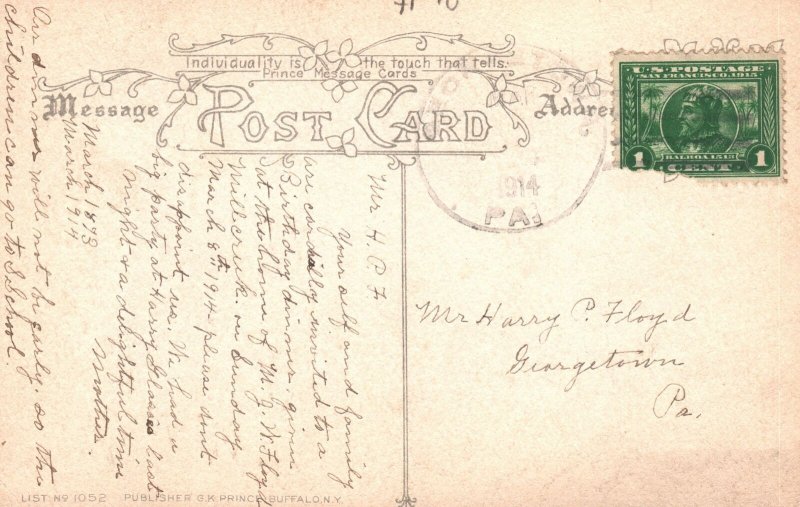 Individuality is the touch that tells.
Prince Message Cards
Message
POST CARD
U.S. POSTAGE
SAN FRANCISCO 1915
BALBOA 1513
1 CENT 1
1914
PA.
Mr H. P. F
Your self and family
are cordially invited to a
Birthday dinner, given
at the home of W. J. W. Floyd
Millcreek, on Sunday
March 8th 1914 please dont
disappoint us. We had a
big party at Harry Glasses last
night & a delightful time
Mother.
March 1873
March 1914
Our dinner will not be early. so the
children can go to S. School.
Mr Harry P. Floyd
Georgetown
Pa.
LIST NO 1052 PUBLISHER G.K. PRINCE BUFFALO, N.Y.